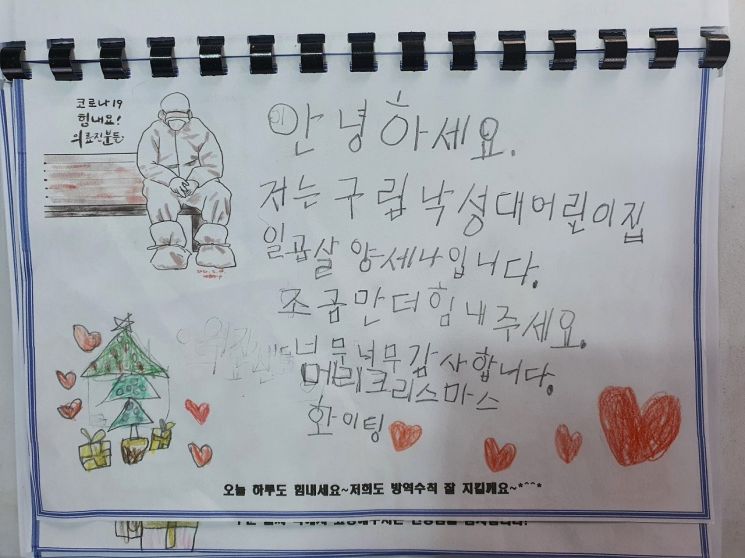 코로나19
힘내요!
의료진분들
안녕하세요.
저는구립낙성대어린이집
일곱살 양세나입니다.
조금만더힘내주세요.
너무너무감사합니다.
메리크리스마스
화이팅
오늘 하루도 힘내세요~저희도 방역수칙 잘 지킬께요~*^^*